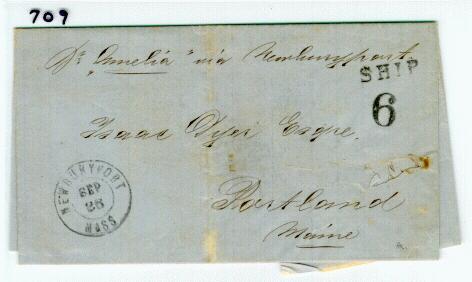 709
Pr "Amelia" via Newburyport
SHIP
6
Isaac Dyer Esqre.
NEWBURYPORT
SEP
28
MASS
Portland
Maine